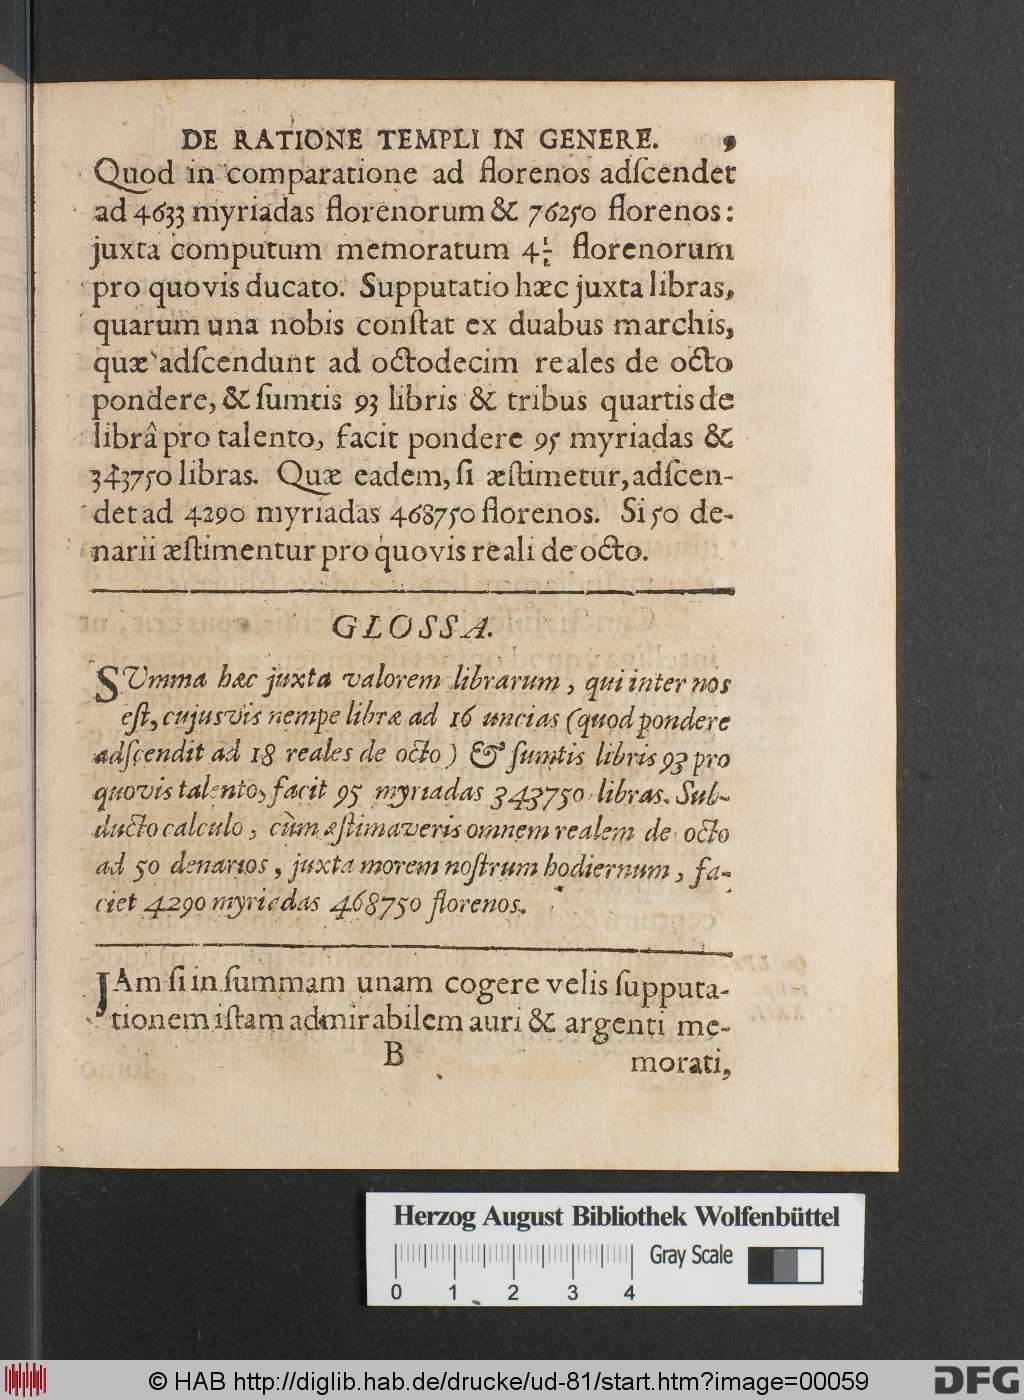 DE RATIONE TEMPLI IN GENERE. 9
Quod in comparatione ad florenos adſcendet
ad 4633 myriadas florenorum & 76250 florenos:
juxta computum memoratum 4½ florenorum
pro quovis ducato. Supputatio hæc juxta libras,
quarum una nobis conſtat ex duabus marchis,
quæ adſcendunt ad octodecim reales de octo
pondere, & ſumtis 93 libris & tribus quartis de
librâ pro talento, facit pondere 95 myriadas &
343750 libras. Quæ eadem, ſi æſtimetur, adſcen-
det ad 4290 myriadas 468750 florenos. Si 50 de-
narii æſtimentur pro quovis reali de octo.
GLOSSA.
SUmma hæc juxta valorem librarum, qui inter nos
eſt, cujusvis nempe libræ ad 16 uncias (quod pondere
adſcendit ad 18 reales de octo) & ſumtis libris 93 pro
quovis talento, facit 95 myriadas 343750 libras. Sub-
ducto calculo, cùm æſtimaveris omnem realem de octo
ad 50 denarios, juxta morem noſtrum hodiernum, fa-
ciet 4290 myriadas 468750 florenos.
JAm ſi in ſummam unam cogere velis ſupputa-
tionem iſtam admirabilem auri & argenti me-
B morati,
Herzog August Bibliothek Wolfenbüttel
Gray Scale
0 1 2 3 4
© HAB http://diglib.hab.de/drucke/ud-81/start.htm?image=00059
DFG